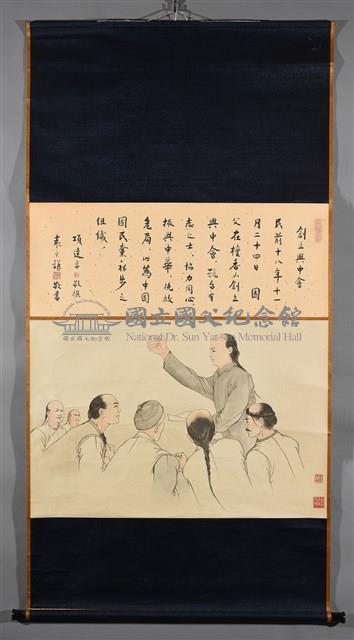 創立興中會
民前十八年十一
月二十四日 國
父在檀香山創立
興中會 號召有
志之士 協力同心
振興中華 挽救
危局 以為中國
國民黨初步之
組織
項達言 敬撰
敬書
國立國父紀念館
National Dr. Sun Yat-Sen Memorial Hall